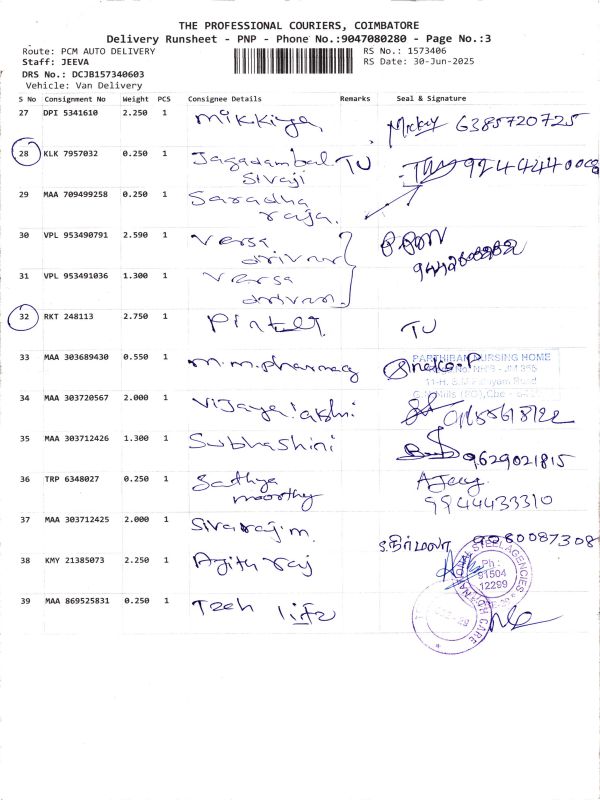 THE PROFESSIONAL COURIERS, COIMBATORE
Delivery Runsheet - PNP - Phone No.:9047080280 - Page No.:3
Route: PCM AUTO DELIVERY
RS No.: 1573406
Staff: JEEVA
RS Date: 30-Jun-2025
DRS No.: DCJB157340603
Vehicle: Van Delivery
S No Consignment No Weight PCS Consignee Details Remarks Seal & Signature
27 DPI 5341610 2.250 1 Mikkiya, Mickey 6385720725
28 KLK 7957032 0.250 1 Jagadambal TU
Sivaji
29 MAA 709499258 0.250 1 Saradha
raja.
30 VPL 953490791 2.590 1 Versa
31 VPL 953491036 1.300 1 Versa
32 RKT 248113 2.750 1 TU
33 MAA 303689430 0.550 1 m.m.pharmacy
PARTHIBAN NURSING HOME
34 MAA 303720567 2.000 1 Vijayalakshi
35 MAA 303712426 1.300 1 Subhashini 9629021815
36 TRP 6348027 0.250 1 Sathya
moorthy
Ajay
9944433310
37 MAA 303712425 2.000 1 Sivaraj.m.
38 KMY 21385073 2.250 1 Ajith raj
STEEL AGENCIES
Ph:
91504
12299
39 MAA 869525831 0.250 1 Tech life